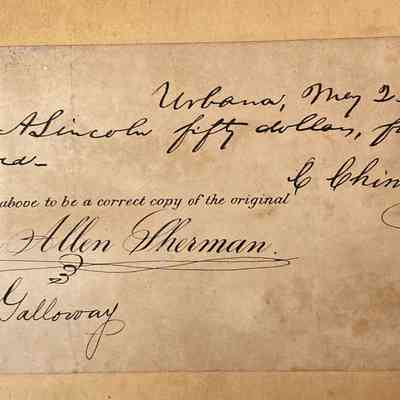 Urbana, May 2
A Lincoln fifty dollars, f

above to be a correct copy of the original
C Chin
Allen Sherman.
Galloway